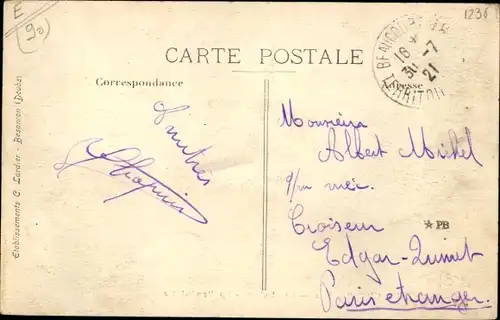 E
90
1236
CARTE POSTALE
Correspondance
Adresse
BEAUCOURT
16 *
30 -7
21
TERRITOIRE
Amitiés
Monsieur
Albert Michel
q/m méc.
Croiseur
Edgar-Quinet
Paris étranger.
* PB
Etablissements C. Lardier - Besançon (Doubs)